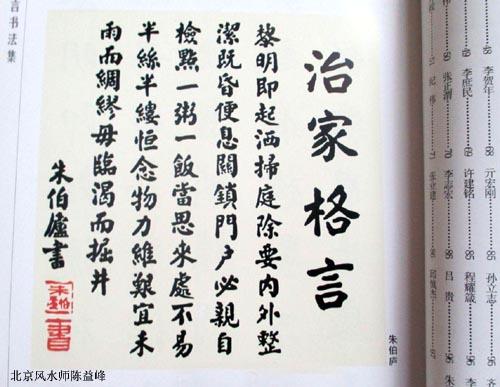 言书法集
治家格言
黎明即起洒掃庭除要内外整
潔既昏便息關鎖門户必親自
檢點一粥一飯當思來處不易
半絲半縷恒念物力維艱宜未
雨而綢繆毋臨渴而掘井
朱伯廬書
朱伯庐
李贺年
68
亓宏刚
孙立志
李庶民
69
许建铭
85
程耀葳
张正渭
70
李志宏
86
吕贵
71
97
北京风水师陈益峰